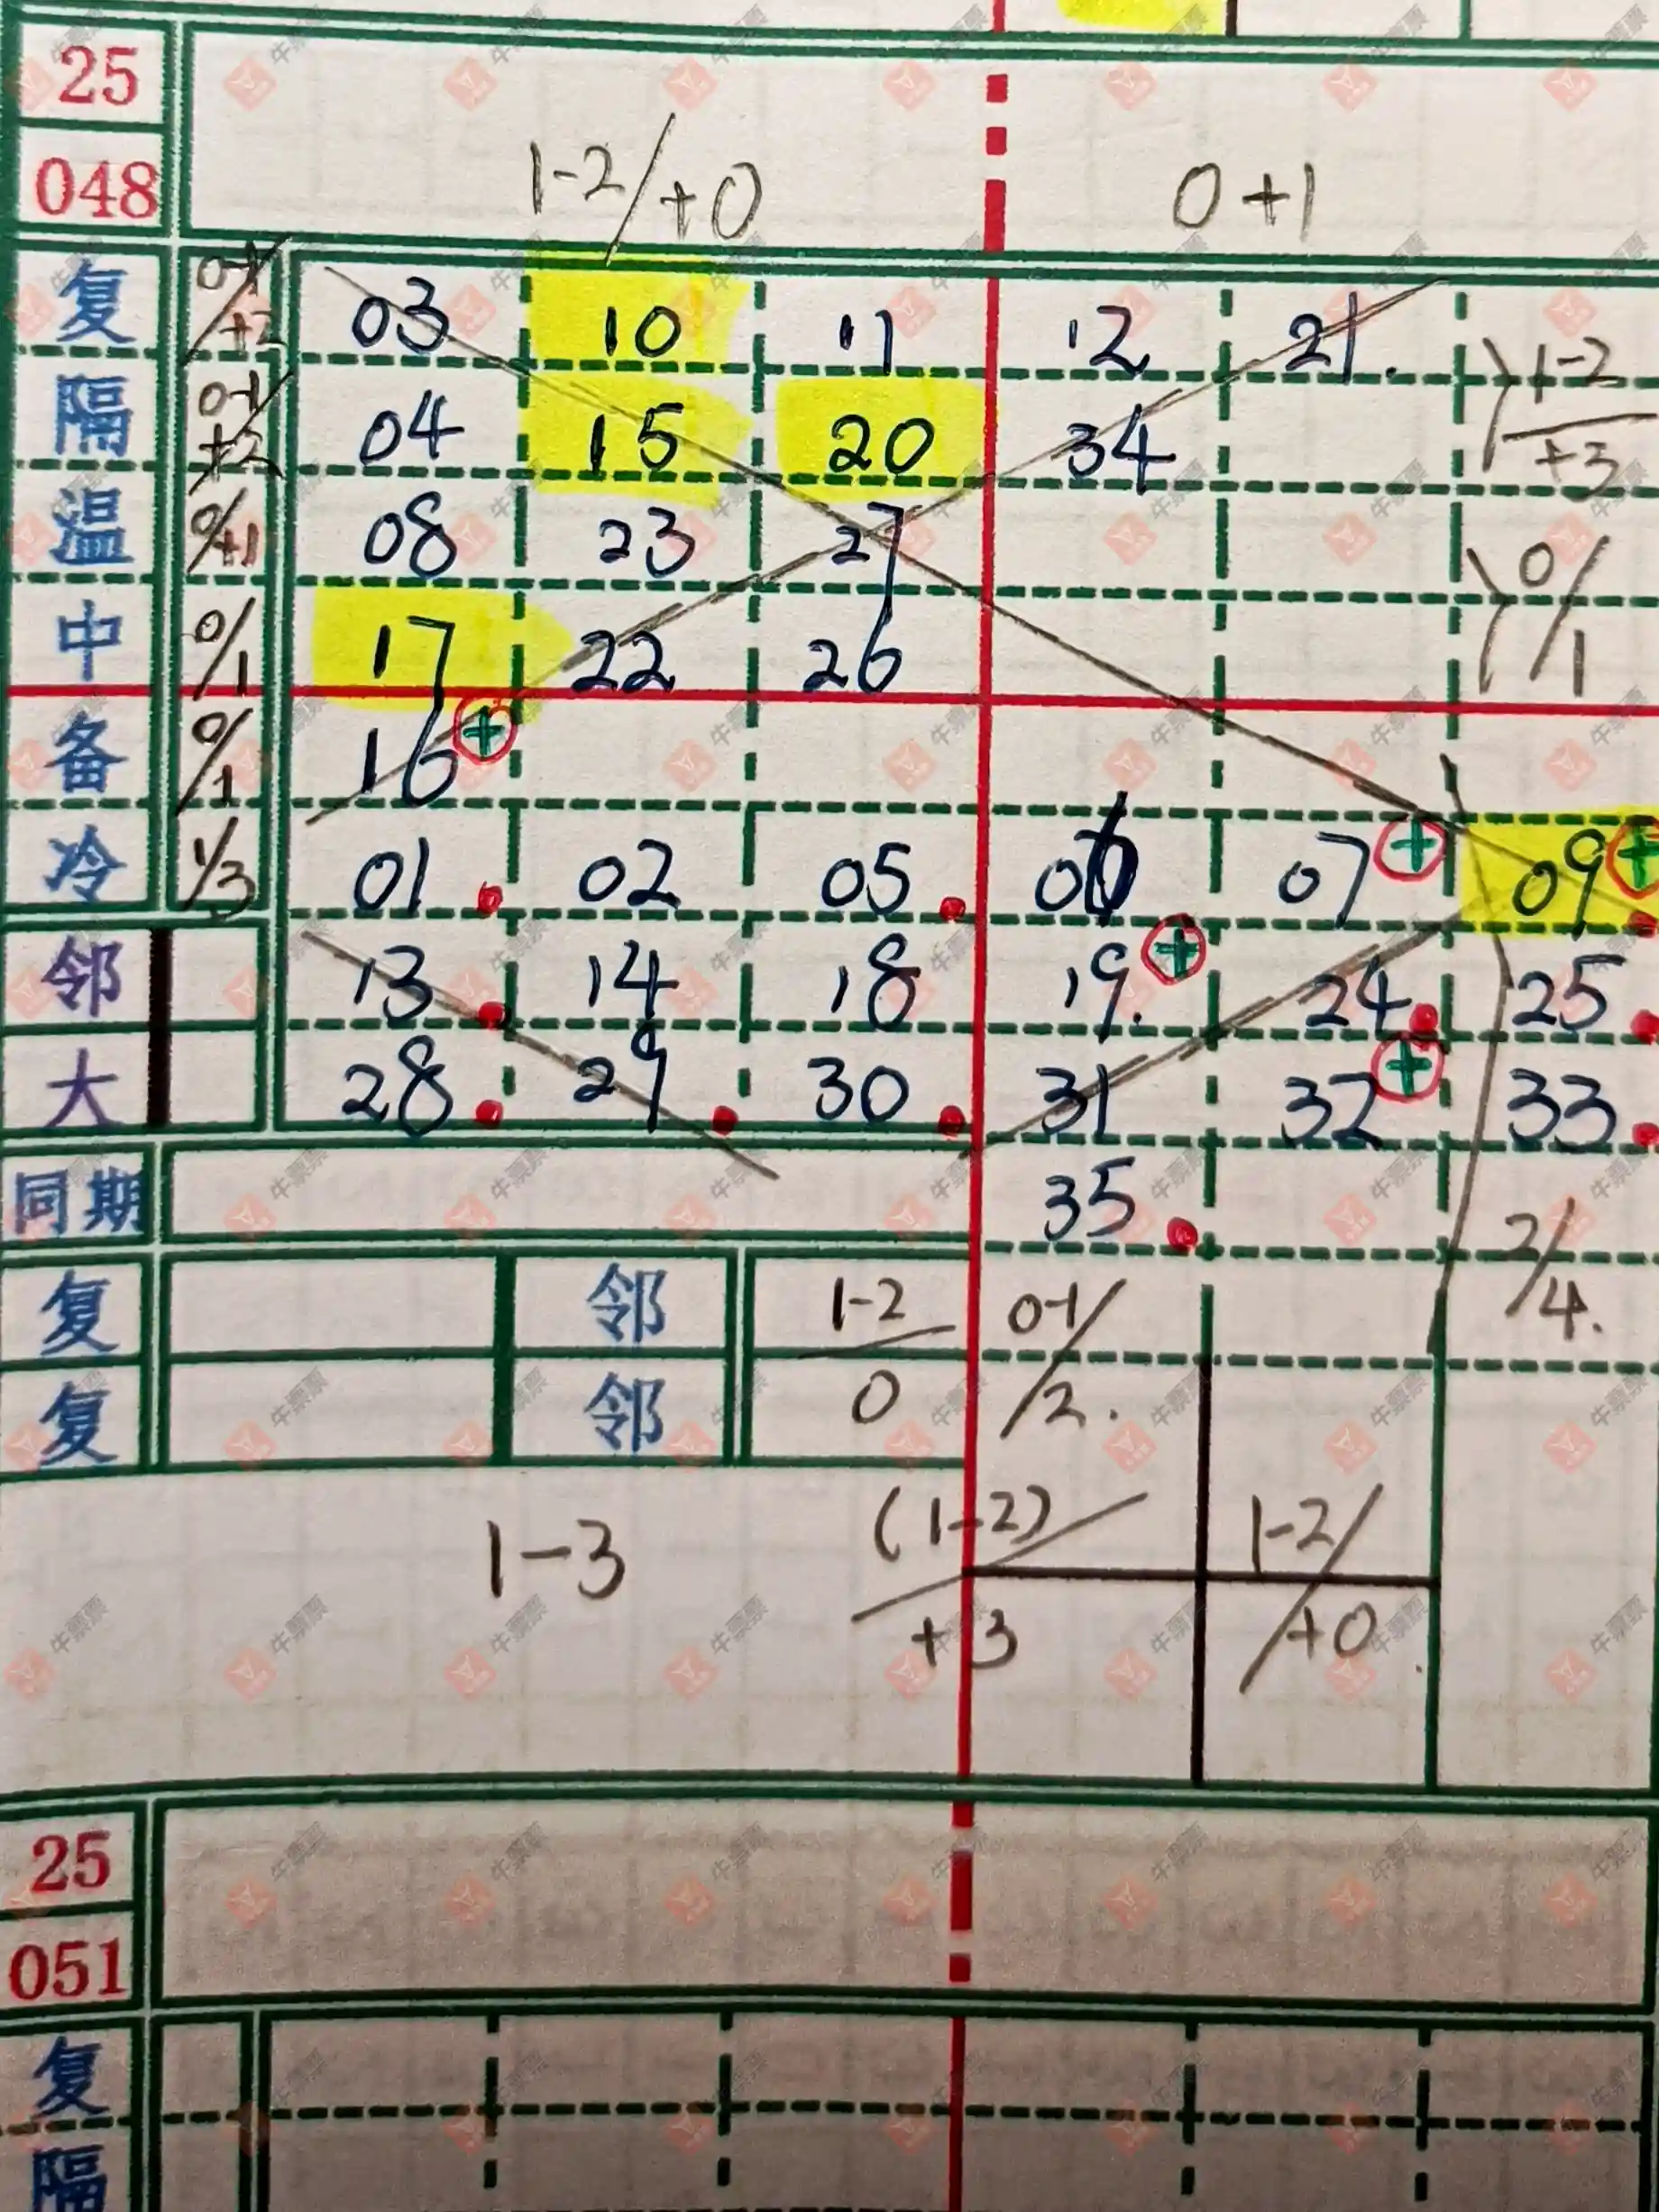 25
048
1-2/+0 0+1
复 0-1/+2 03 10 11 12 21.
1-2/+3
隔 0-1/+2 04 15 20 34
温 0/+1 08 23 27
0/1
中 0/1 17 22 26
备 0/1 16 +
冷 1/3 01 02 05 06 07 + 09 +
邻 13 14 18 19. + 24 25
大 28 29 30 31 32 + 33
同期 35
2/4.
复 邻 1-2/0 0-1/2.
复 邻
1-3 (1-2)/+3 1-2/+0
25
051
复
隔
牛票票